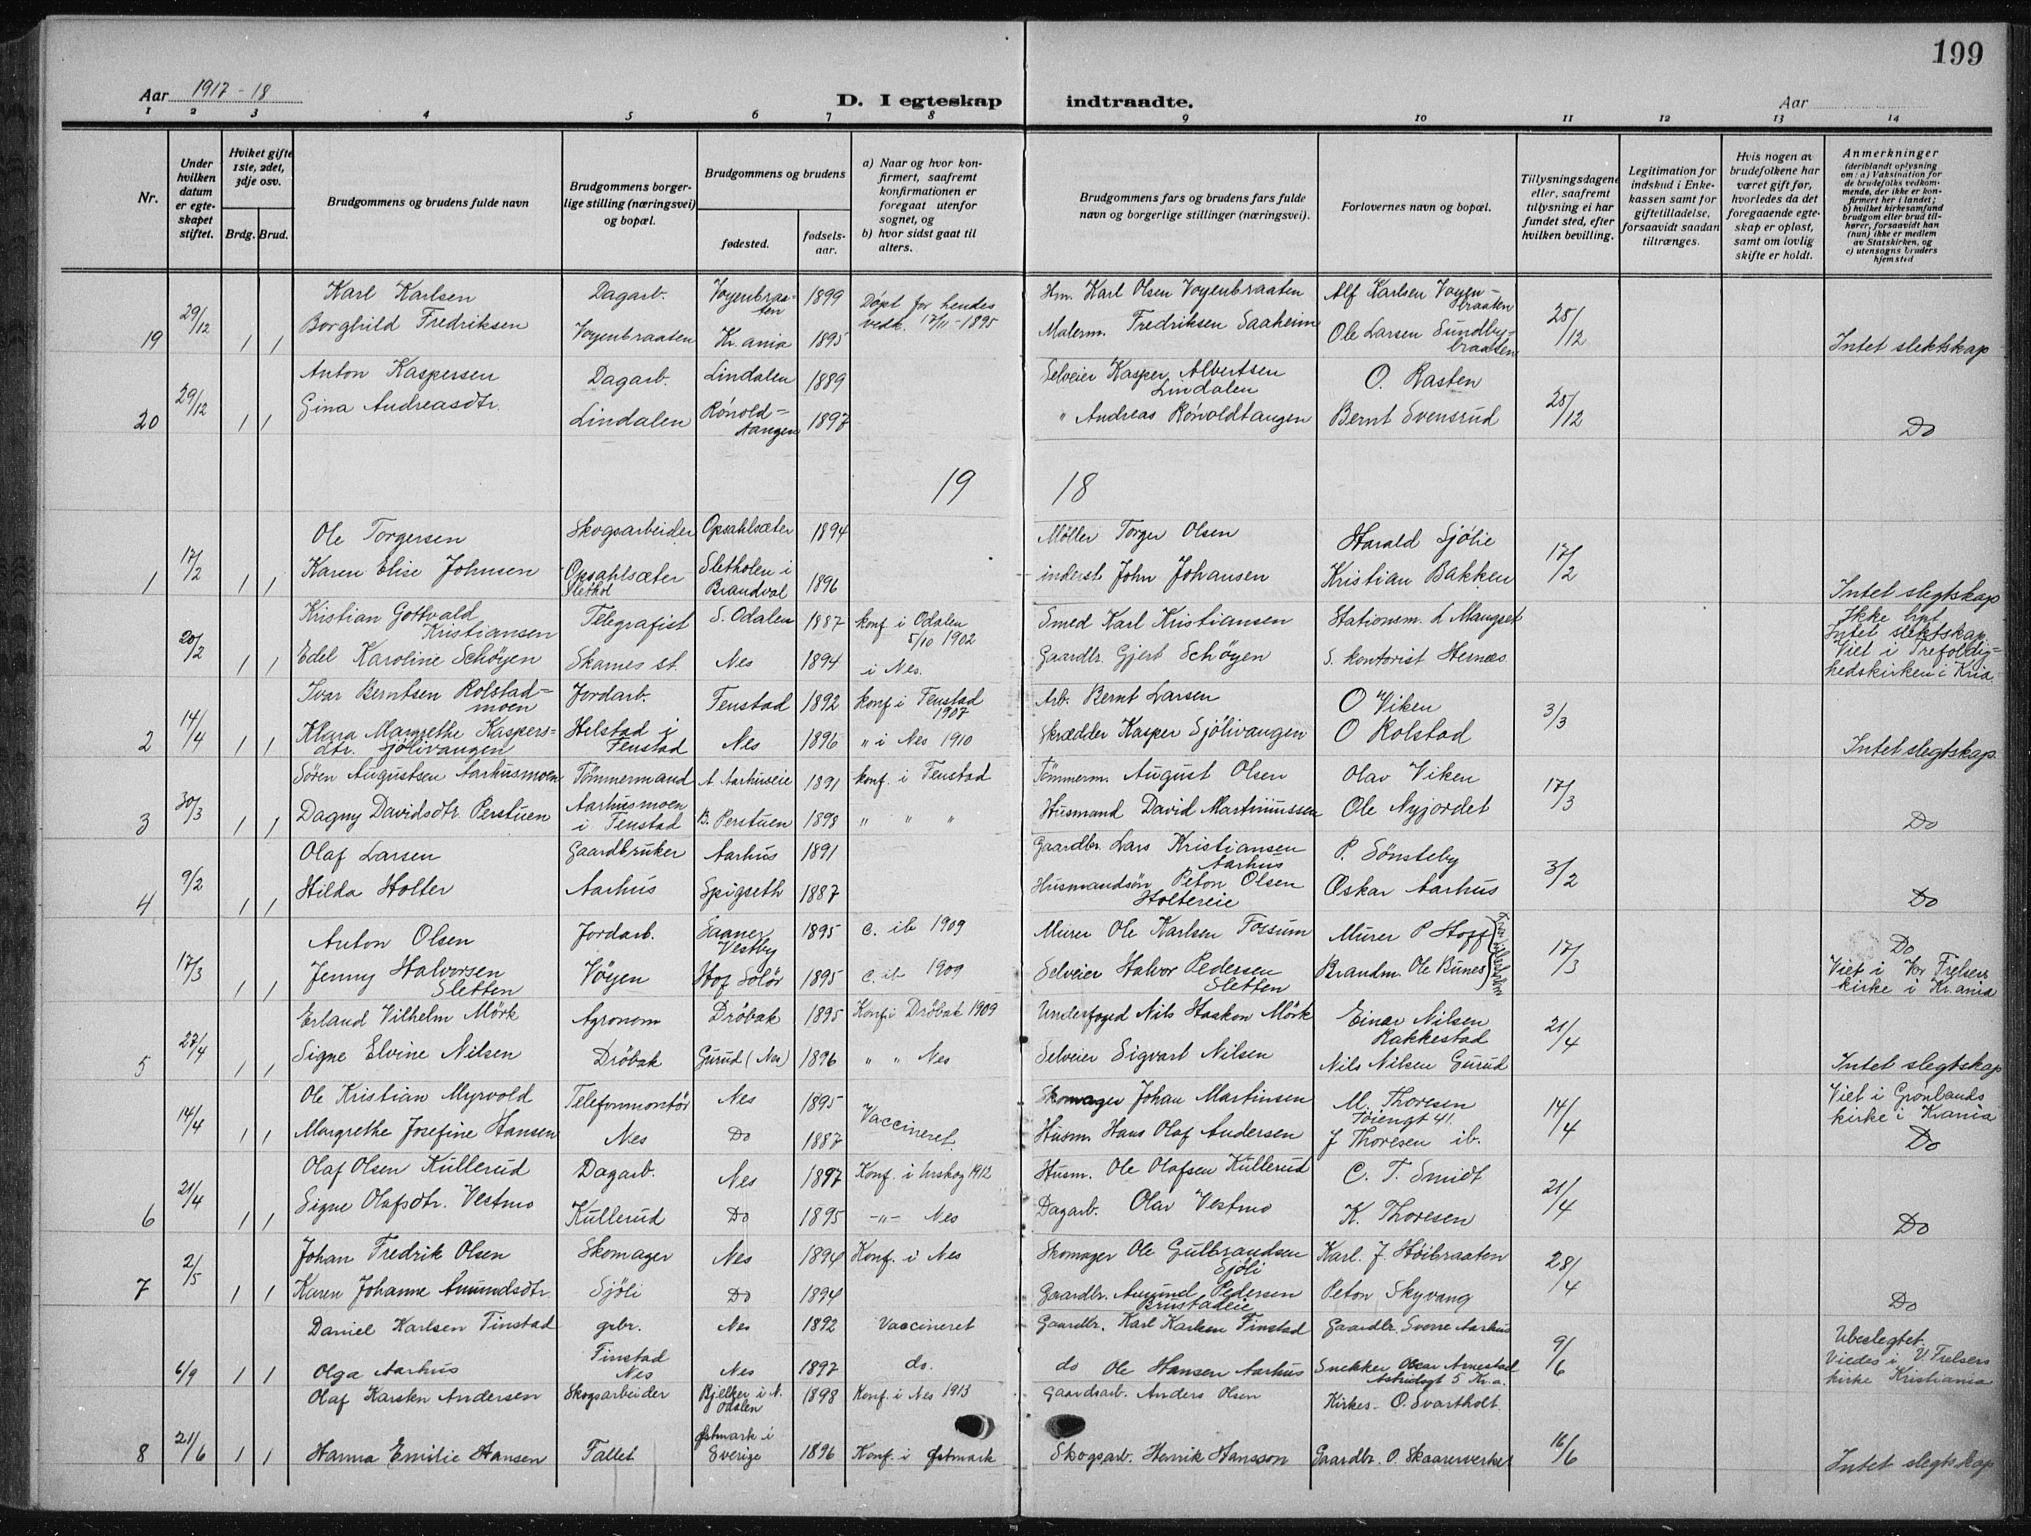 199
Aar 1917-18
D. I egteskap indtraadte.
Aar
1 2 3 4 5 6 7 8 9 10 11 12 13 14
Nr.
Under hvilken datum er egteskapet stiftet.
Hvilket gifte 1ste, 2det, 3dje osv.
Brdg. Brud.
Brudgommens og brudens fulde navn
Brudgommens borgerlige stilling (næringsvei) og bopæl.
Brudgommens og brudens
fødested.
fødselsaar.
a) Naar og hvor konfirmert, saafremt konfirmationen er foregaat utenfor sognet, og
b) hvor sidst gaat til alters.
Brudgommens fars og brudens fars fulde navn og borgerlige stillinger (næringsvei).
Forlovernes navn og bopæl.
Tillysningsdagene eller, saafremt tillysning ei har fundet sted, efter hvilken bevilling.
Legitimation for indskud i Enkekassen samt for giftetilladelse, forsaavidt saadan tiltrænges.
Hvis nogen av brudefolkene har været gift før, hvorledes da det foregaaende egteskap er opløst, samt om lovlig skifte er holdt.
Anmerkninger
(deriblandt oplysning om: a) Vaksination for de brudefolks vedkommende, der ikke er konfirmert her i landet; b) hvilket kirkesamfund brudgom eller brud tilhører, forsaavidt han (hun) ikke er medlem av Statskirken, og c) utensogns bruders hjemsted
Karl Karlsen Dagarb. Voyenbraaten 1899 Døpt for hendes Hm. Karl Olsen Voyenbraaten Alf Karlsen Voyenbraaten
19 29/12 1 1 Borghild Fredriksen Voyenbraaten Kr.ania 1895 vedk. 17/11-1895 Malerm. Fredriksen Saaheim Ole Larsen Sundbybraaten 25/12 Intet slektskap
Anton Kaspersen Dagarb. Lindalen 1889 Selveier Kasper Albertsen Lindalen O. Rasten
20 29/12 1 1 Gina Andreasdtr. Lindalen Rönoldtangen 1897 " Andreas Rönoldtangen Bernt Svensrud 25/12 Do
19 18
Ole Torgersen Skogsarbeider Opsahlsæter 1894 Møller Torger Olsen Harald Sjölie
1 17/2 1 1 Karen Elise Johnsen Opsahlsæter Slethol Sletholen i Brandval 1896 inderst John Johansen Kristian Bakken 17/2 Intet slegtskap
Kristian Gottvald Kristiansen Telegrafist S. Odalen 1887 konf i Odalen 5/10 1902 Smed Karl Kristiansen Stationsm. L Mangset Ikke lyst
20/2 1 1 Edel Karoline Schöyen Skarnes st. Nes 1894 i Nes. Gaardbr. Gjert Schöyen S. kontorist Hernæs Intet slektskap. Viet i Trefoldighedskirken i Kria.
Ivar Berntsen Rolstadmoen Jordarb. Fenstad 1892 konf i Fenstad 1907 Arb. Bernt Larsen O Viken
2 14/4 1 1 Klara Margrethe Kaspersdtr. Sjölivangen Helstad i Fenstad Nes 1896 " i Nes 1910 Skrædder Kasper Sjölivangen O Rolstad 3/3 Intet slegtskap.
Sören Augustsen Aarhusmoen Tömmermand A. Aarhuseie 1891 konf. i Fenstad Tömmerm. August Olsen Olav Viken
3 30/3 1 1 Dagny Davidsdtr. Perstuen Aarhusmoen i Fenstad B. Perstuen 1898 " " " Husmand David Martiniussen Ole Nyjordet 17/3 Do
Olaf Larsen Gaardbruker Aarhus 1891 Gaardbr. Lars Kristiansen Aarhus P. Sönsteby
4 9/2 1 1 Hilda Holter Aarhus Spigseth 1887 Husmandsön Peton Olsen Holtereie Oskar Aarhus 3/2 Do
Anton Olsen Jordarb. Saaner Vestby 1895 c. ib 1909 Murer Ole Karlsen Fossum Murer P Hoff Do
17/3 1 1 Jenny Halvorsen Sletten Vöyen Hof Solör 1895 c. ib 1909 Selveier Halvor Pedersen Sletten Brandm. Ole Bunes 17/3 Viet i Vor Frelsers kirke i Kr.ania
Erland Vilhelm Mörk Agronom Dröbak 1895 Konf i Dröbak 1909 Underfoged Nils Haakon Mörk Einar Nilsen Rakkestad
5 27/4 1 1 Signe Elvine Nilsen Dröbak Gurud (Nes) 1896 " " Nes Selveier Sigvart Nilsen Nils Nilsen Gurud 21/4 Intet slegtskap
Ole Kristian Myrvold Telefonmontör Nes 1895 Vaccineret Skomager Johan Martinsen M. Thoresen Töiengt 41. Viet i Grönlands kirke i Krania
14/4 1 1 Margrethe Josefine Hansen Nes Do 1887 Husm. Hans Olaf Andersen J Thoresen ib. 14/4 Do
Olaf Olsen Kullerud Dagarb. Nes 1897 Konf. i Urskog 1912 Husm. Ole Olafsen Kullerud C. T. Smidt
6 21/4 1 1 Signe Olafsdtr. Vestmo Kullerud Do 1895 -"- Nes Dagarb. Olav Vestmo K. Thoresen 21/4 Do
Johan Fredrik Olsen Skomager Nes 1894 Konf. i Nes Skomager Ole Gulbrandsen Sjöli Karl. J. Höibraaten
7 2/5 1 1 Karen Johanne Amundsdtr. Sjöli Do 1894 Gaardbr. Amund Pedersen Brustadeie Peton Skyvang 28/4 Do
Daniel Karlsen Finstad grbr. Nes 1892 Vaccineret Gaardbr. Karl Karlsen Finstad Gaardbr. Sverre Aarhus Ubeslegtet.
6/9 1 1 Olga Aarhus Finstad Nes Nes 1897 do. do Ole Hansen Aarhus Snekker Oscar Arnestad Astridsgt 5 Kr.a. 9/6 Viedes i V. Frelsers kirke Kristiania
Olaf Karsten Andersen Skogsarbeider Bjelker i N. Odalen 1898 Konf. i Nes 1913 Gaardsarb. Anders Olsen Kirkes. O. Svartholt.
8 21/6 1 1 Hanna Emilie Hansen Fallet Østmark i Sverige 1896 Konf. i Østmark Skogsarb. Henrik Hansson Gaardbr. O. Skaarerverket 16/6 Intet slegtskap